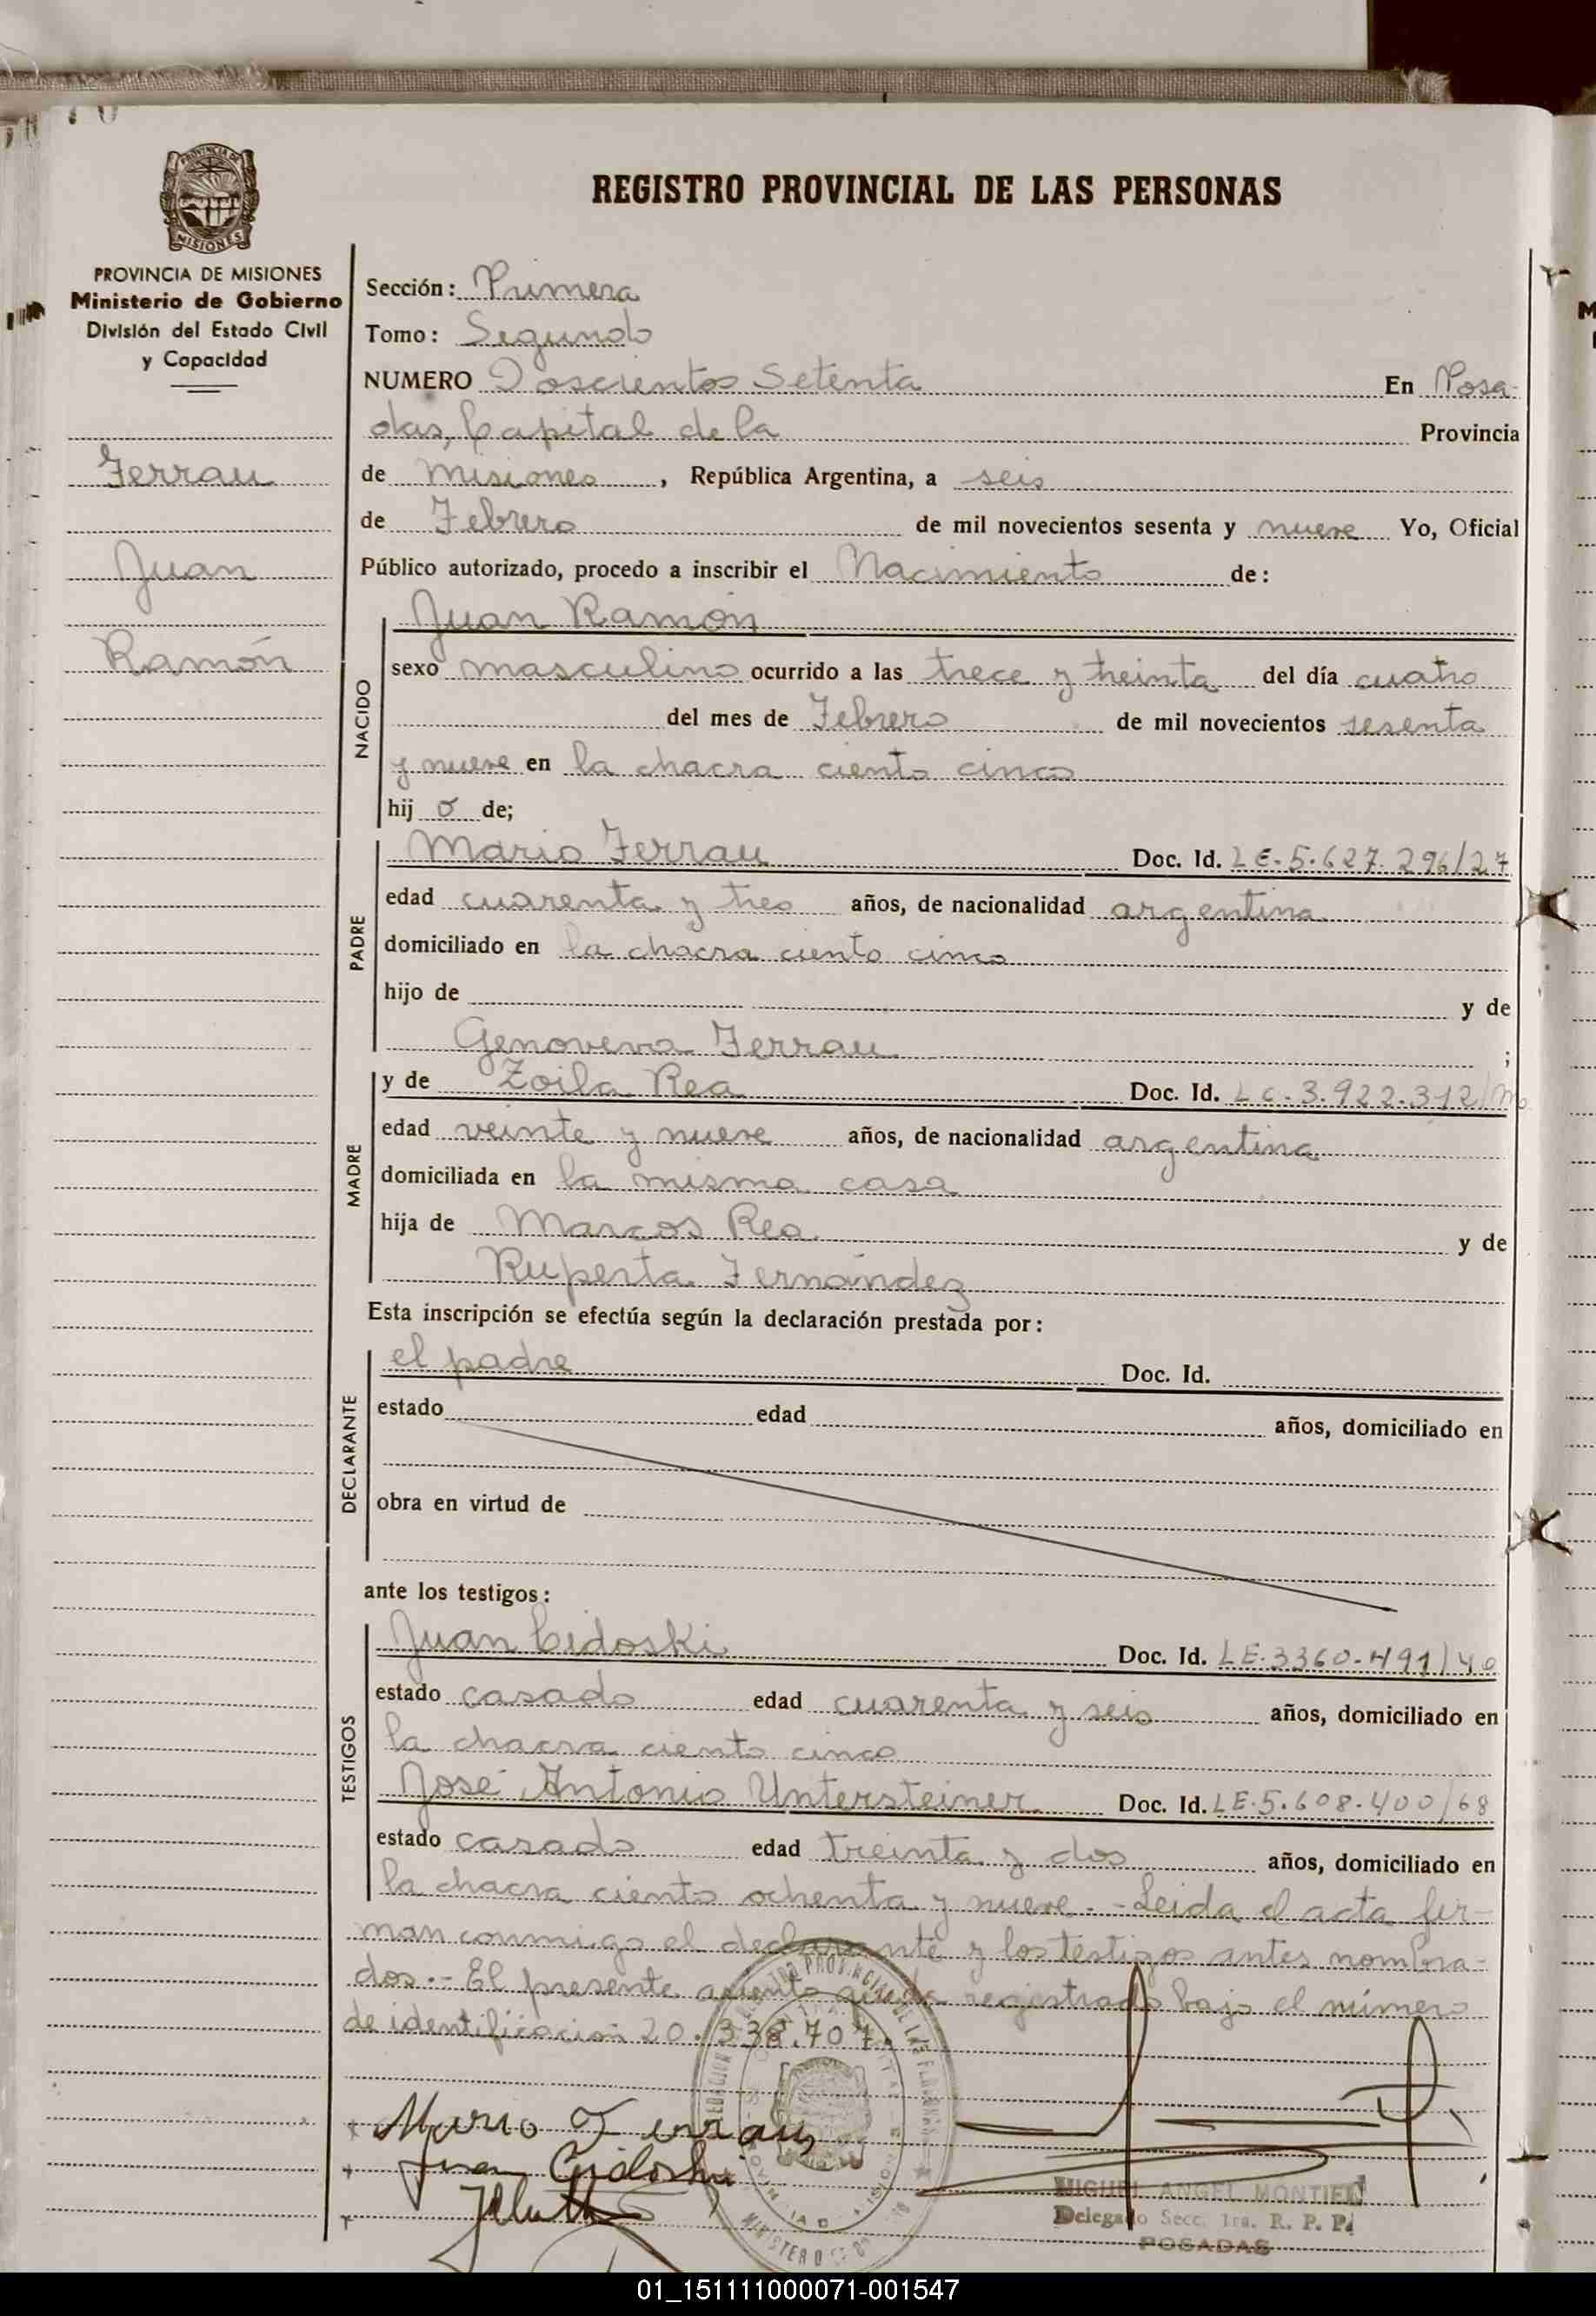 REGISTRO PROVINCIAL DE LAS PERSONAS
PROVINCIA DE MISIONES
Ministerio de Gobierno
División del Estado Civil
y Capacidad
Ferrau
Juan
Ramón
Sección: Primera
Tomo: Segundo
NUMERO Doscientos Setenta En Posa-
das, Capital de la Provincia
de Misiones, República Argentina, a seis
de Febrero de mil novecientos sesenta y nueve Yo, Oficial
Público autorizado, procedo a inscribir el Nacimiento de:
NACIDO
Juan Ramón
sexo masculino ocurrido a las trece y treinta del día cuatro
del mes de Febrero de mil novecientos sesenta
y nueve en la chacra ciento cinco
hij o de;
PADRE
Mario Ferrau Doc. Id. LE. 5.627.296/27
edad cuarenta y tres años, de nacionalidad argentina
domiciliado en la chacra ciento cinco
hijo de y de
Genoveva Ferrau ;
MADRE
y de Zoila Rea Doc. Id. LC. 3.922.312/M
edad veinte y nueve años, de nacionalidad argentina
domiciliada en la misma casa
hija de Marcos Rea y de
Ruperta Fernández
Esta inscripción se efectúa según la declaración prestada por:
DECLARANTE
el padre Doc. Id.
estado edad años, domiciliado en
obra en virtud de
ante los testigos:
TESTIGOS
Juan Cidoski Doc. Id. LE. 3360.491/40
estado casado edad cuarenta y seis años, domiciliado en
la chacra ciento cinco
José Antonio Untersteiner Doc. Id. LE. 5.608.400/68
estado casado edad treinta y dos años, domiciliado en
la chacra ciento ochenta y nueve.- Leida el acta fir-
man conmigo el declarante y los testigos antes nombra-
dos.- El presente asiento queda registrado bajo el número
de identificación 20.338.707.
Mario Ferrau
Juan Cidoski
MIGUEL ANGEL MONTIEL
Delegado Secc. 1ra. R. P. P.
POSADAS
01_151111000071-001547